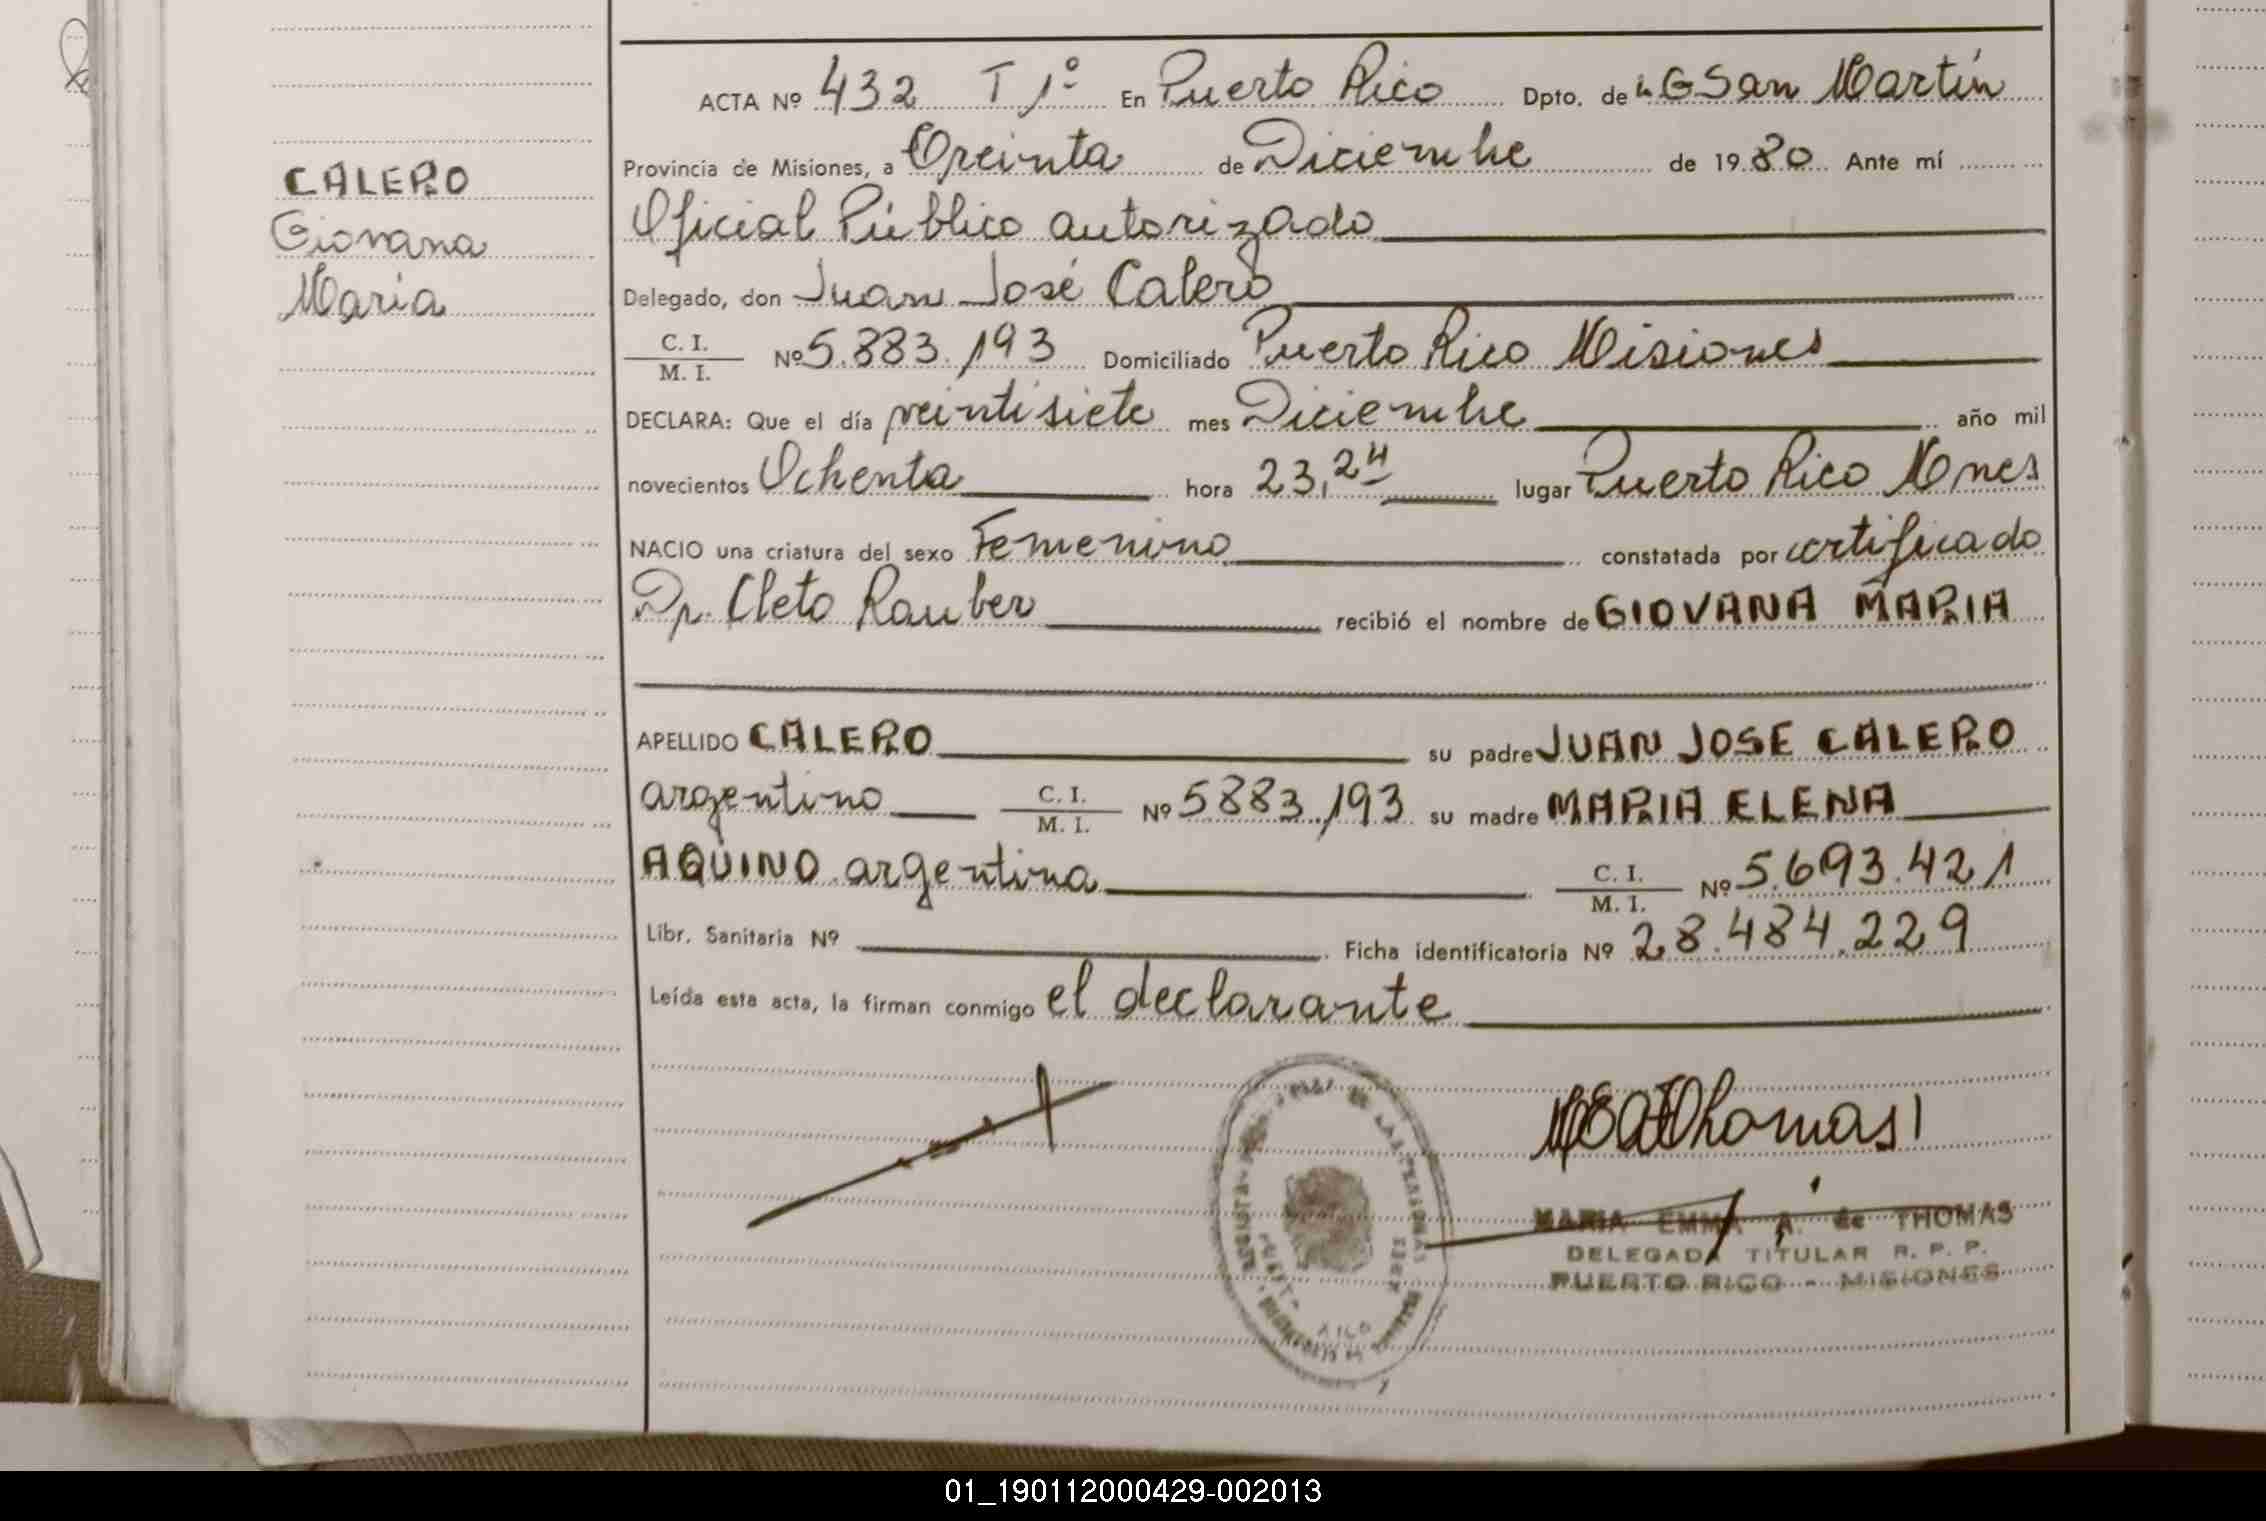 ACTA Nº 432 T 1º En Puerto Rico Dpto. de L G San Martín
Provincia de Misiones, a Treinta de Diciembre de 1980 Ante mí
CALERO
Giovana
María
Oficial Público autorizado
Delegado, don Juan José Calero
C. I.
M. I.
Nº 5.883.193 Domiciliado Puerto Rico Misiones
DECLARA: Que el día veintisiete mes Diciembre año mil
novecientos Ochenta hora 23,24 lugar Puerto Rico Mnes
NACIO una criatura del sexo Femenino constatada por certificado
Dr. Cleto Rauber recibió el nombre de GIOVANA MARIA
APELLIDO CALERO su padre JUAN JOSE CALERO
argentino C. I. M. I. Nº 5883.193 su madre MARIA ELENA
AQUINO argentina C. I. M. I. Nº 5.693.421
Libr. Sanitaria Nº Ficha identificatoria Nº 28.484.229
Leída esta acta, la firman conmigo el declarante
Thomas
MARIA EMMA A. de THOMAS
DELEGADA TITULAR R. P. P.
PUERTO RICO - MISIONES
01_190112000429-002013